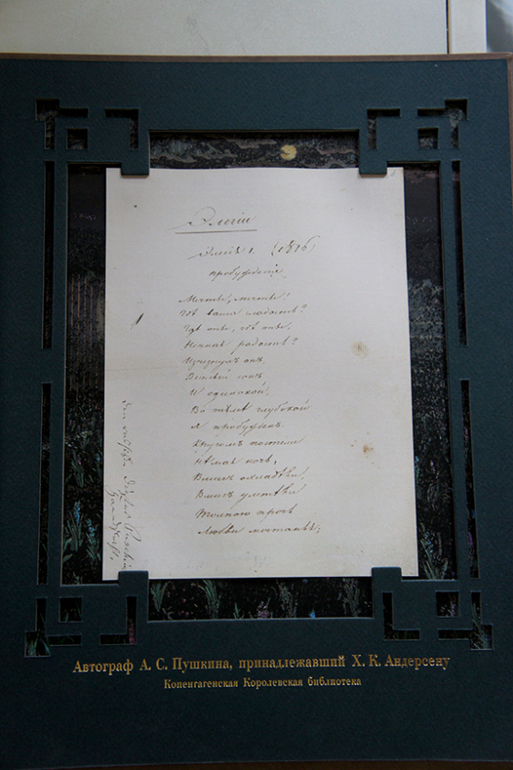 Элегіи
Элегія 1. (1816)
пробужденіе
Мечты, мечты!
Гдѣ ваша сладость?
Гдѣ ты, гдѣ ты,
Ночная радость?
Изчезнулъ онъ
Веселый сонъ
И одинокой,
Во тьмѣ глубокой
Я пробужденъ.
Кругомъ постели
Нѣмая ночь,
Вмигъ охладѣли,
Вмигъ улетѣли
Толпою прочь
Любви мечтанья;
Den russiske Digter Puschkins
Haandskrift.
Автограф А. С. Пушкина, принадлежавший Х. К. Андерсену
Копенгагенская Королевская библиотека